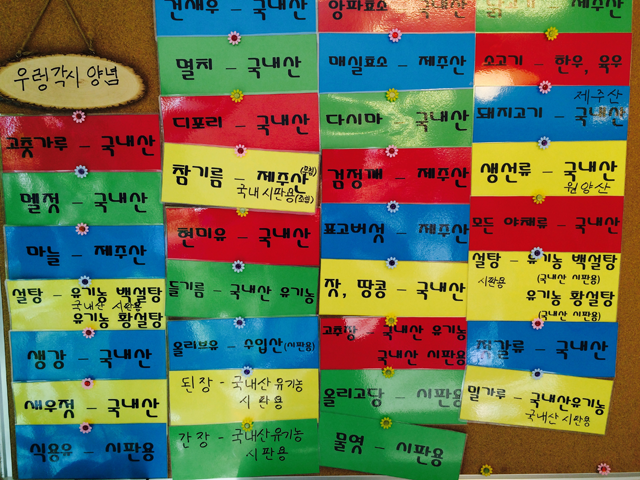 우렁각시 양념
고춧가루 – 국내산
멜젓 – 국내산
마늘 – 제주산
설탕 – 유기농 백설탕
국내산 시판용
유기농 황설탕
생강 – 국내산
새우젓 – 국내산
식용유 – 시판용
건새우 – 국내산
멸치 – 국내산
디포리 – 국내산
참기름 – 제주산
국내 시판용
현미유 – 국내산
들기름 – 국내산 유기농
올리브유 – 수입산 (시판용)
된장 - 국내산 유기농
시판용
간장 - 국내산 유기농
시판용
양파효소 – 제주산
매실효소 – 제주산
다시마 – 국내산
검정깨 – 제주산
표고버섯 – 제주산
잣, 땅콩 – 국내산
고추장 국내산 유기농
국내산 시판용
올리고당 – 시판용
물엿 – 시판용
제주산
소고기 – 한우, 육우
제주산
돼지고기 – 국내산
생선류 – 국내산
원양산
모든 야채류 – 국내산
설탕 – 유기농 백설탕
시판용
(국내산 시판용)
유기농 황설탕
(국내산 시판용)
젓갈류 – 국내산
밀가루 – 국내산유기농
국내산 시판용